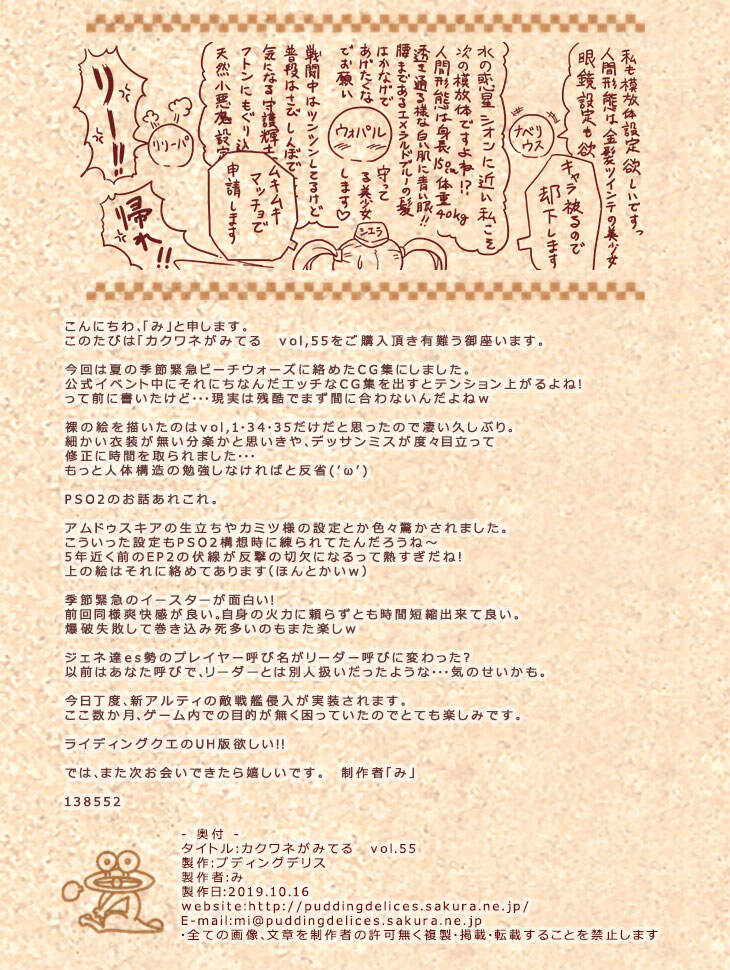 私も模放体設定欲しいですっ
人間形態は金髪ツインテの美少女
眼鏡設定も欲
ナベリ
ウス
キャラ被るので
却下します
水の惑星シオンに近い私こそ
次の模放体ですよね!?
人間形態は身長150㎝体重40kg
透き通る様な白い肌に青い服!!
腰まであるエメラルドブルーの髪
はかなげで
守って
あげたくな
る美少女
でお願い
します♡
ウォパル
シエラ
戦闘中はツンツンしてるけど
普段はさびしんぼで
気になる守護輝士
フトンにもぐり込
天然小悪魔設定
ムキムキ
マッチョで
申請します
リリーパ
リー!!
帰れ!!
こんにちわ、「み」と申します。
このたびは「カクワネがみてる　vol,55をご購入頂き有難う御座います。
今回は夏の季節緊急ビーチウォーズに絡めたCG集にしました。
公式イベント中にそれにちなんだエッチなCG集を出すとテンション上がるよね!
って前に書いたけど・・・現実は残酷でまず間に合わないんだよねw
裸の絵を描いたのはvol,1・34・35だけだと思ったので凄い久しぶり。
細かい衣装が無い分楽かと思いきや、デッサンミスが度々目立って
修正に時間を取られました・・・
もっと人体構造の勉強しなければと反省('ω')
PSO2のお話あれこれ。
アムドゥスキアの生立ちやカミツ様の設定とか色々驚かされました。
こういった設定もPSO2構想時に練られてたんだろうね～
5年近く前のEP2の伏線が反撃の切欠になるって熱すぎだね!
上の絵はそれに絡めてあります(ほんとかいw)
季節緊急のイースターが面白い!
前回同様爽快感が良い。自身の火力に頼らずとも時間短縮出来て良い。
爆破失敗して巻き込み死多いのもまた楽しw
ジェネ達es勢のプレイヤー呼び名がリーダー呼びに変わった?
以前はあなた呼びで、リーダーとは別人扱いだったような・・・気のせいかも。
今日丁度、新アルティの敵戦艦侵入が実装されます。
ここ数か月、ゲーム内での目的が無く困っていたのでとても楽しみです。
ライディングクエのUH版欲しい!!
では、また次お会いできたら嬉しいです。　制作者「み」
138552
- 奥付 -
タイトル:カクワネがみてる　vol.55
製作:プディングデリス
製作者:み
製作日:2019.10.16
website:http://puddingdelices.sakura.ne.jp/
E-mail:mi@puddingdelices.sakura.ne.jp
・全ての画像、文章を制作者の許可無く複製・掲載・転載することを禁止します